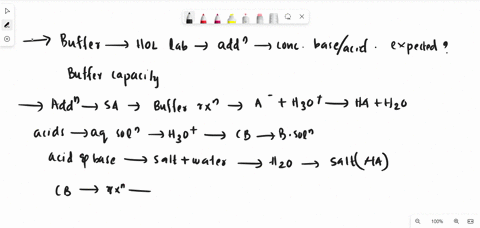 → Buffer → HOL lab → addⁿ → conc. base/acid. expected?
Buffer capacity
→ Addⁿ → SA → Buffer rxⁿ → A⁻ + H₃O⁺ → HA + H₂O
acids → aq solⁿ → H₃O⁺ → CB → B.solⁿ
acid & base → salt + water → H₂O → salt(HA)
CB → rxⁿ —
100%